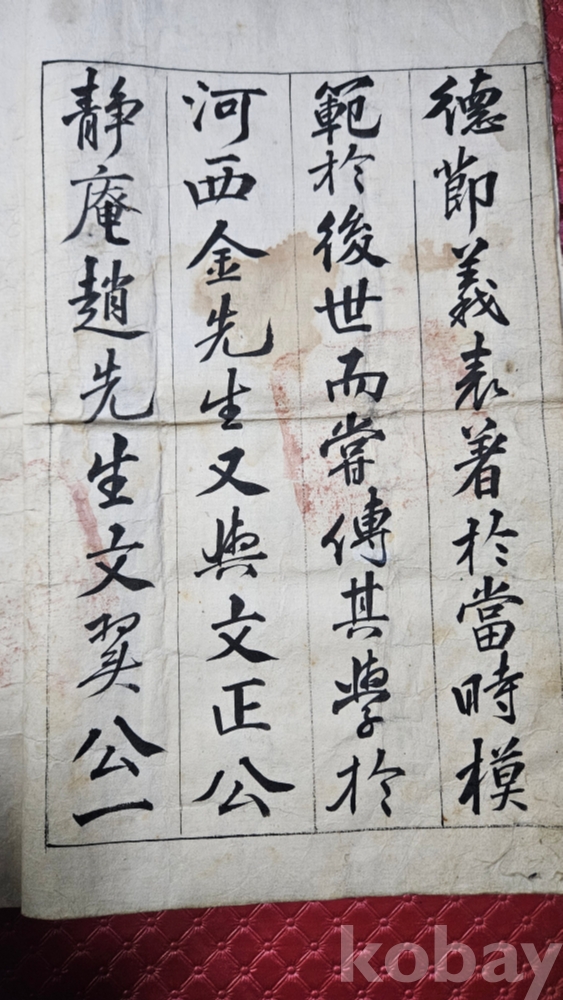 德節義表著於當時模
範於後世而嘗傳其學於
河西金先生又與文正公
靜庵趙先生文翼公一
kobay